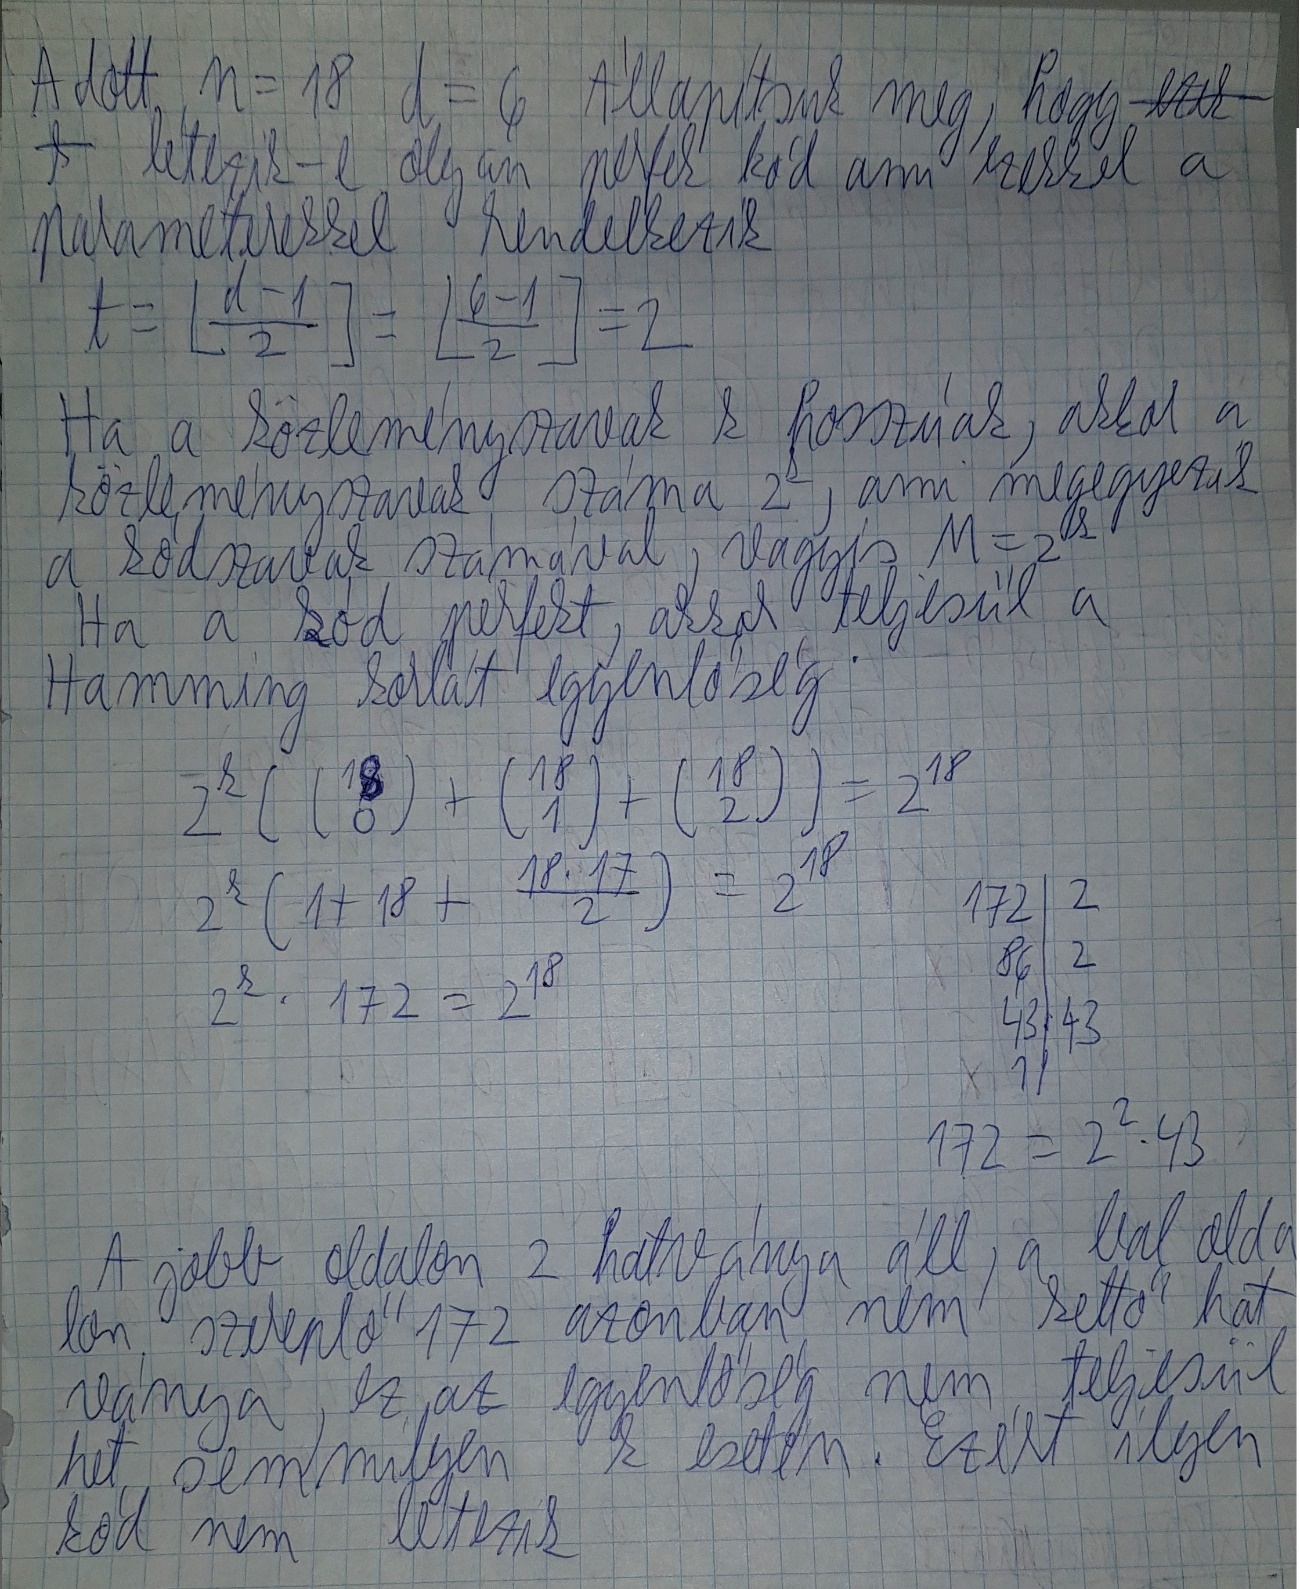 Adott n = 18 d = 6 Állapítsuk meg, hogy
létezik-e olyan perfek kód ami ezekkel a
paraméterekkel rendelkezik
t = ⌊(d-1)/2⌋ = ⌊(6-1)/2⌋ = 2
Ha a közleményszavak k hosszúak, akkor a
közleményszavak száma 2^k, ami megegyezik
a kódszavak számával, vagyis M = 2^k
Ha a kód perfekt, akkor teljesül a
Hamming korlát egyenlőség:
2^k ( (18 0) + (18 1) + (18 2) ) = 2^18
2^k ( 1 + 18 + (18·17)/2 ) = 2^18
172 | 2
86 | 2
2^k · 172 = 2^18
43 | 43
1 |
172 = 2^2 · 43
A jobb oldalon 2 hatványa áll, a bal olda
lon szereplő 172 azonban nem kettő hat
ványa, ez az egyenlőség nem teljesül
het semmilyen k esetén. Ezért ilyen
kód nem létezik